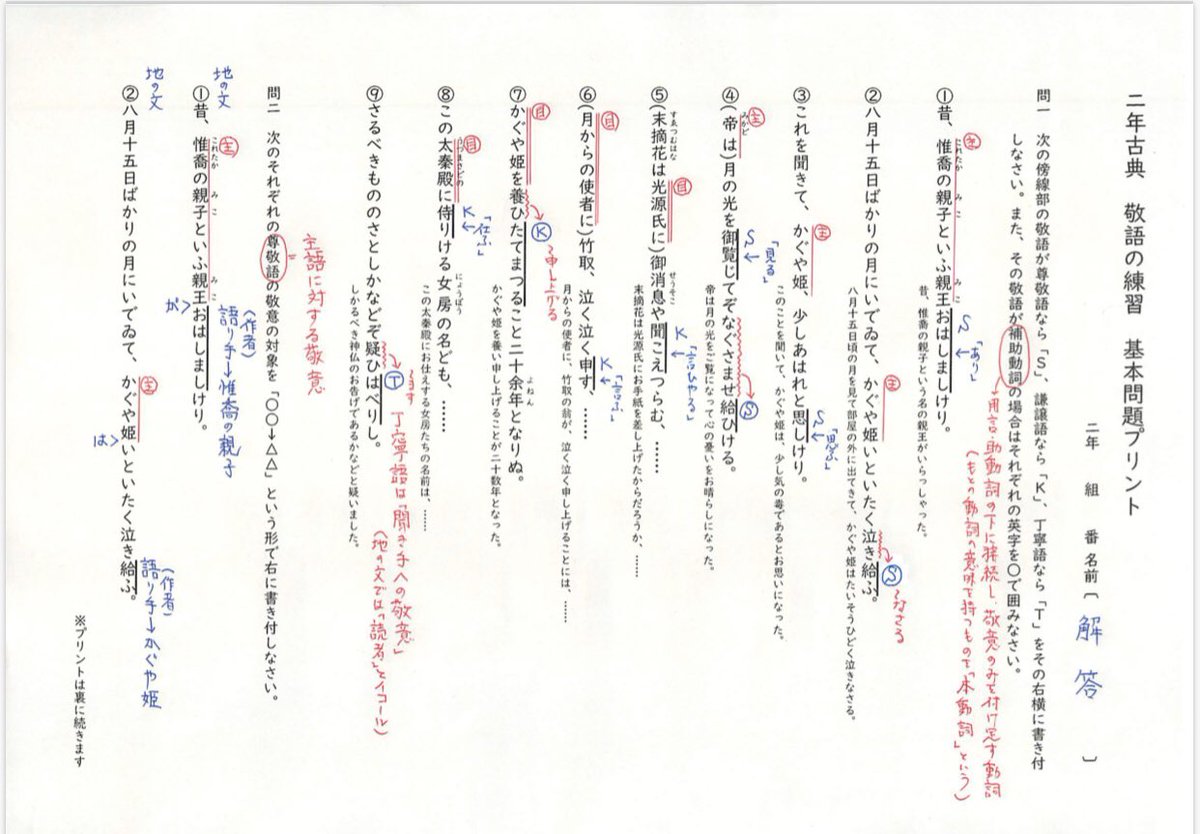 二年古典　敬語の練習　基本問題プリント
二年　組　番 名前〔　解答　〕
問一　次の傍線部の敬語が尊敬語なら「S」、謙譲語なら「K」、丁寧語なら「T」をその右横に書き付
しなさい。また、その敬語が補助動詞の場合はそれぞれの英字を〇で囲みなさい。
用言・助動詞の下に接続し、敬意のみを付け足す動詞
(もとの動詞の意味を持つものを「本動詞」という)
①昔、惟喬の親子といふ親王おはしましけり。
これたか　みこ　みこ
主
S
←「あり」
昔、惟喬の親子という名の親王がいらっしゃった。
②八月十五日ばかりの月にいでゐて、かぐや姫いといたく泣き給ふ。
主
S
〜なさる
八月十五日頃の月を見て部屋の外に出てきて、かぐや姫はたいそうひどく泣きなさる。
③これを聞きて、かぐや姫、少しあはれと思しけり。
主
S
←「思ふ」
このことを聞いて、かぐや姫は、少し気の毒であるとお思いになった。
④(帝は)月の光を御覧じてぞなぐさませ給ひける。
みかど
主
S
←「見る」
S
帝は月の光をご覧になって心の憂いをお晴らしになった。
⑤(末摘花は光源氏に)御消息や聞こえつらむ、……
すゑつむはな　せうそこ
目
K
←「言ひやる」
末摘花は光源氏にお手紙を差し上げたからだろうか、……
⑥(月からの使者に)竹取、泣く泣く申す、……
目
K
←「言ふ」
月からの使者に、竹取の翁が、泣く泣く申し上げることには、……
⑦かぐや姫を養ひたてまつること二十余年となりぬ。
よねん
目
K
〜申し上げる
かぐや姫を養い申し上げることが二十数年となった。
⑧この太秦殿に侍りける女房の名ども、……
うづまさどの　にようぼう
目
K
←「仕ふ」
この太秦殿にお仕えする女房たちの名前は、……
⑨さるべきもののさとしかなどぞ疑ひはべりし。
T
〜ます
丁寧語は「聞き手への敬意」
(地の文では「読者」とイコール)
しかるべき神仏のお告げであるかなどと疑いました。
問二　次のそれぞれの尊敬語の敬意の対象を「〇〇→△△」という形で右に書き付しなさい。
主語に対する敬意
①昔、惟喬の親子といふ親王おはしましけり。
これたか　みこ　みこ
地の文
主
が
(作者)
語り手→惟喬の親子
②八月十五日ばかりの月にいでゐて、かぐや姫いといたく泣き給ふ。
地の文
主
は
(作者)
語り手→かぐや姫
※プリントは裏に続きます